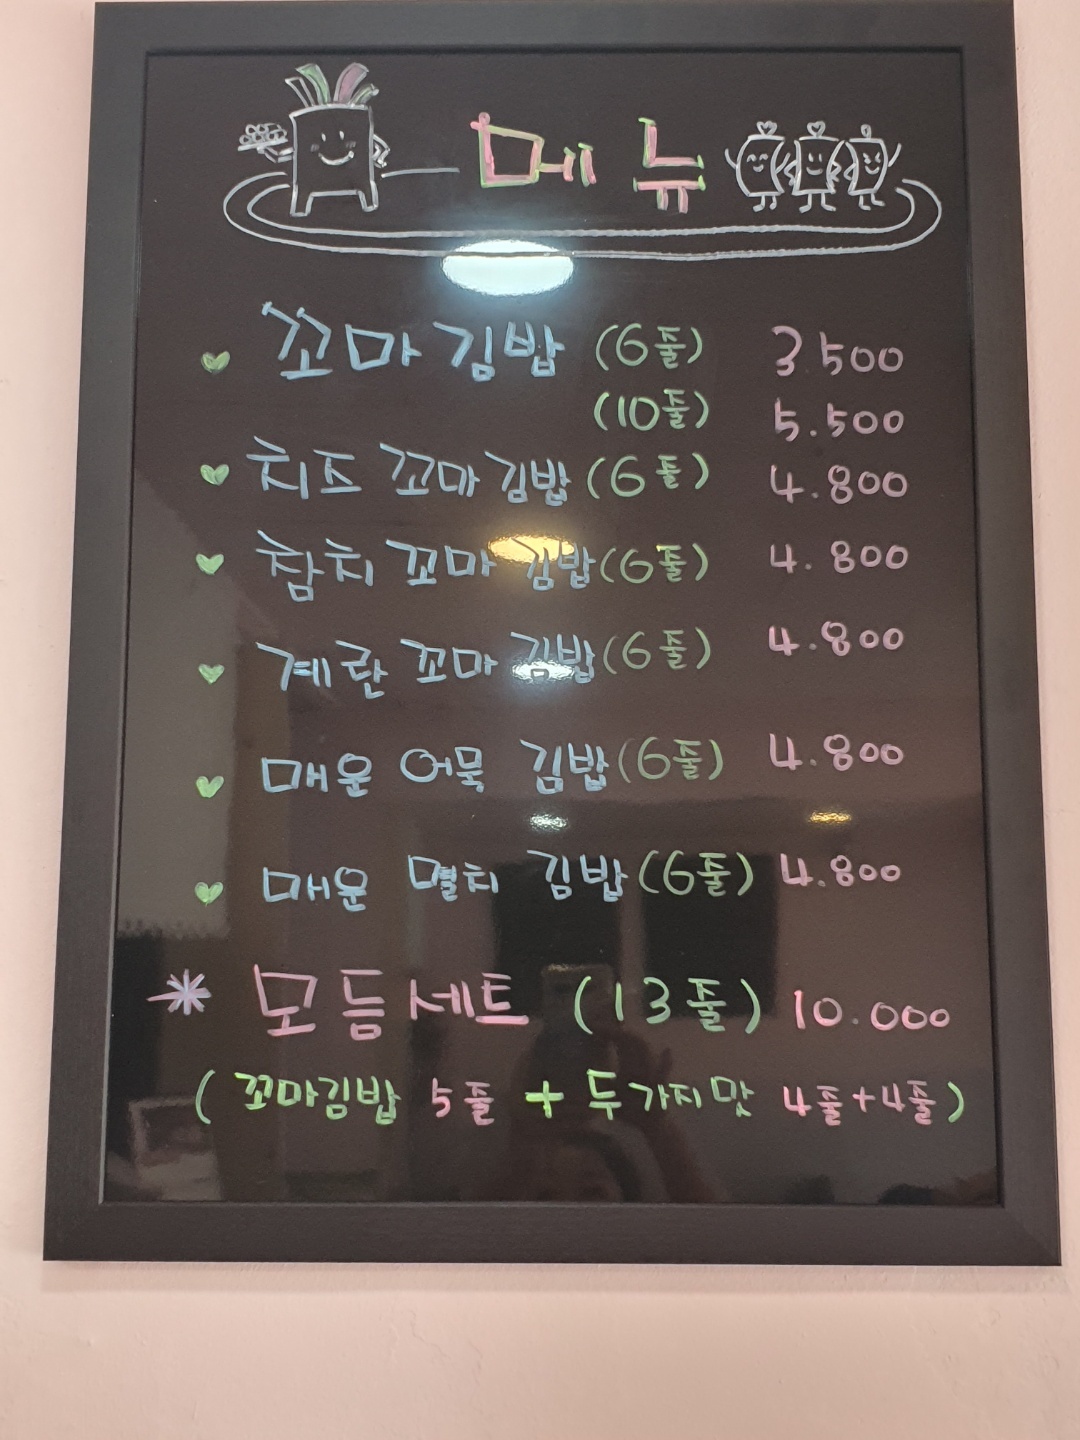 메뉴
꼬마김밥 (6줄) 3.500
(10줄) 5.500
치즈 꼬마김밥 (6줄) 4.800
참치 꼬마 김밥(6줄) 4.800
계란 꼬마 김밥(6줄) 4.800
매운 어묵 김밥(6줄) 4.800
매운 멸치 김밥(6줄) 4.800
* 모듬세트 (13줄) 10.000
( 꼬마김밥 5줄 + 두가지맛 4줄+4줄 )